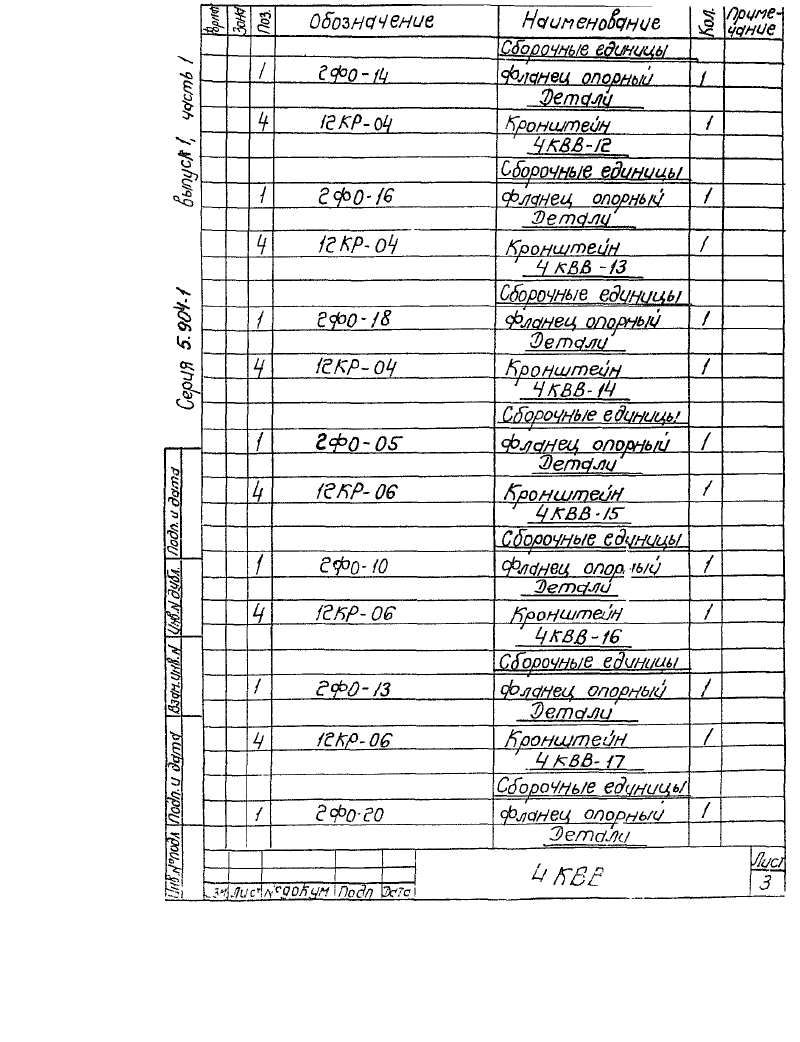 Формат Зона Поз. Обозначение Наименование Кол. Приме-
чание
Сборочные единицы
1 2ФО-14 Фланец опорный 1
Детали
4 12КР-04 Кронштейн 1
4КВВ-12
Сборочные единицы
1 2ФО-16 Фланец опорный 1
Детали
4 12КР-04 Кронштейн 1
4КВВ-13
Сборочные единицы
1 2ФО-18 Фланец опорный 1
Детали
4 12КР-04 Кронштейн 1
4КВВ-14
Сборочные единицы
1 2ФО-05 Фланец опорный 1
Детали
4 12КР-06 Кронштейн 1
4КВВ-15
Сборочные единицы
1 2ФО-10 Фланец опорный 1
Детали
4 12КР-06 Кронштейн 1
4КВВ-16
Сборочные единицы
1 2ФО-13 Фланец опорный 1
Детали
4 12КР-06 Кронштейн 1
4КВВ-17
Сборочные единицы
1 2ФО-20 Фланец опорный 1
Детали
Серия 5.904-1 Выпуск 1, часть 1
Инв.№подл Подп. и дата Взам.инв.N Инв.N дубл. Подп. и дата
Изм Лист №докум Подп Дата
4КВВ
Лист
3